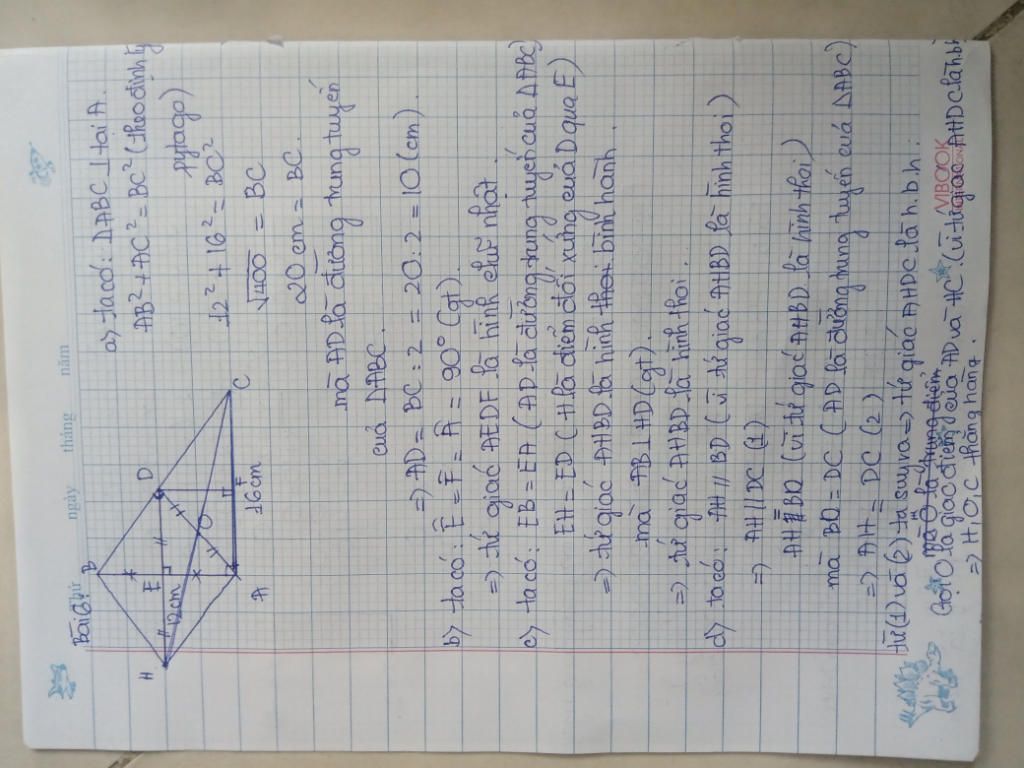 thứ ngày tháng năm
Bài 6:
B
D
H
E
12cm
O
C
A
F
16cm
a) ta có: ΔABC ⊥ tại A.
AB² + AC² = BC² (theo định lý
pytago)
12² + 16² = BC²
√400 = BC
20 cm = BC.
mà AD là đường trung tuyến
của ΔABC.
=> AD = BC : 2 = 20 : 2 = 10 (cm).
b) ta có: Ê = F̂ = Â = 90° (gt).
=> tứ giác AEDF là hình chữ nhật.
c) ta có: EB = EA (AD là đường trung tuyến của ΔABC)
EH = ED (H là điểm đối xứng của D qua E)
=> tứ giác AHBD là hình thoi bình hành.
mà AB ⊥ HD (gt).
=> tứ giác AHBD là hình thoi.
d) ta có: AH // BD (vì tứ giác AHBD là hình thoi)
=> AH // DC (1)
AH = BD (vì tứ giác AHBD là hình thoi)
mà BD = DC (AD là đường trung tuyến của ΔABC)
=> AH = DC (2)
từ (1) và (2) ta suy ra => tứ giác AHDC là h.b.h.
mà O là trung điểm
Gọi O là giao điểm của AD và HC (vì tứ giác AHDC là h.b.h
=> H, O, C thẳng hàng.
VIBOOK